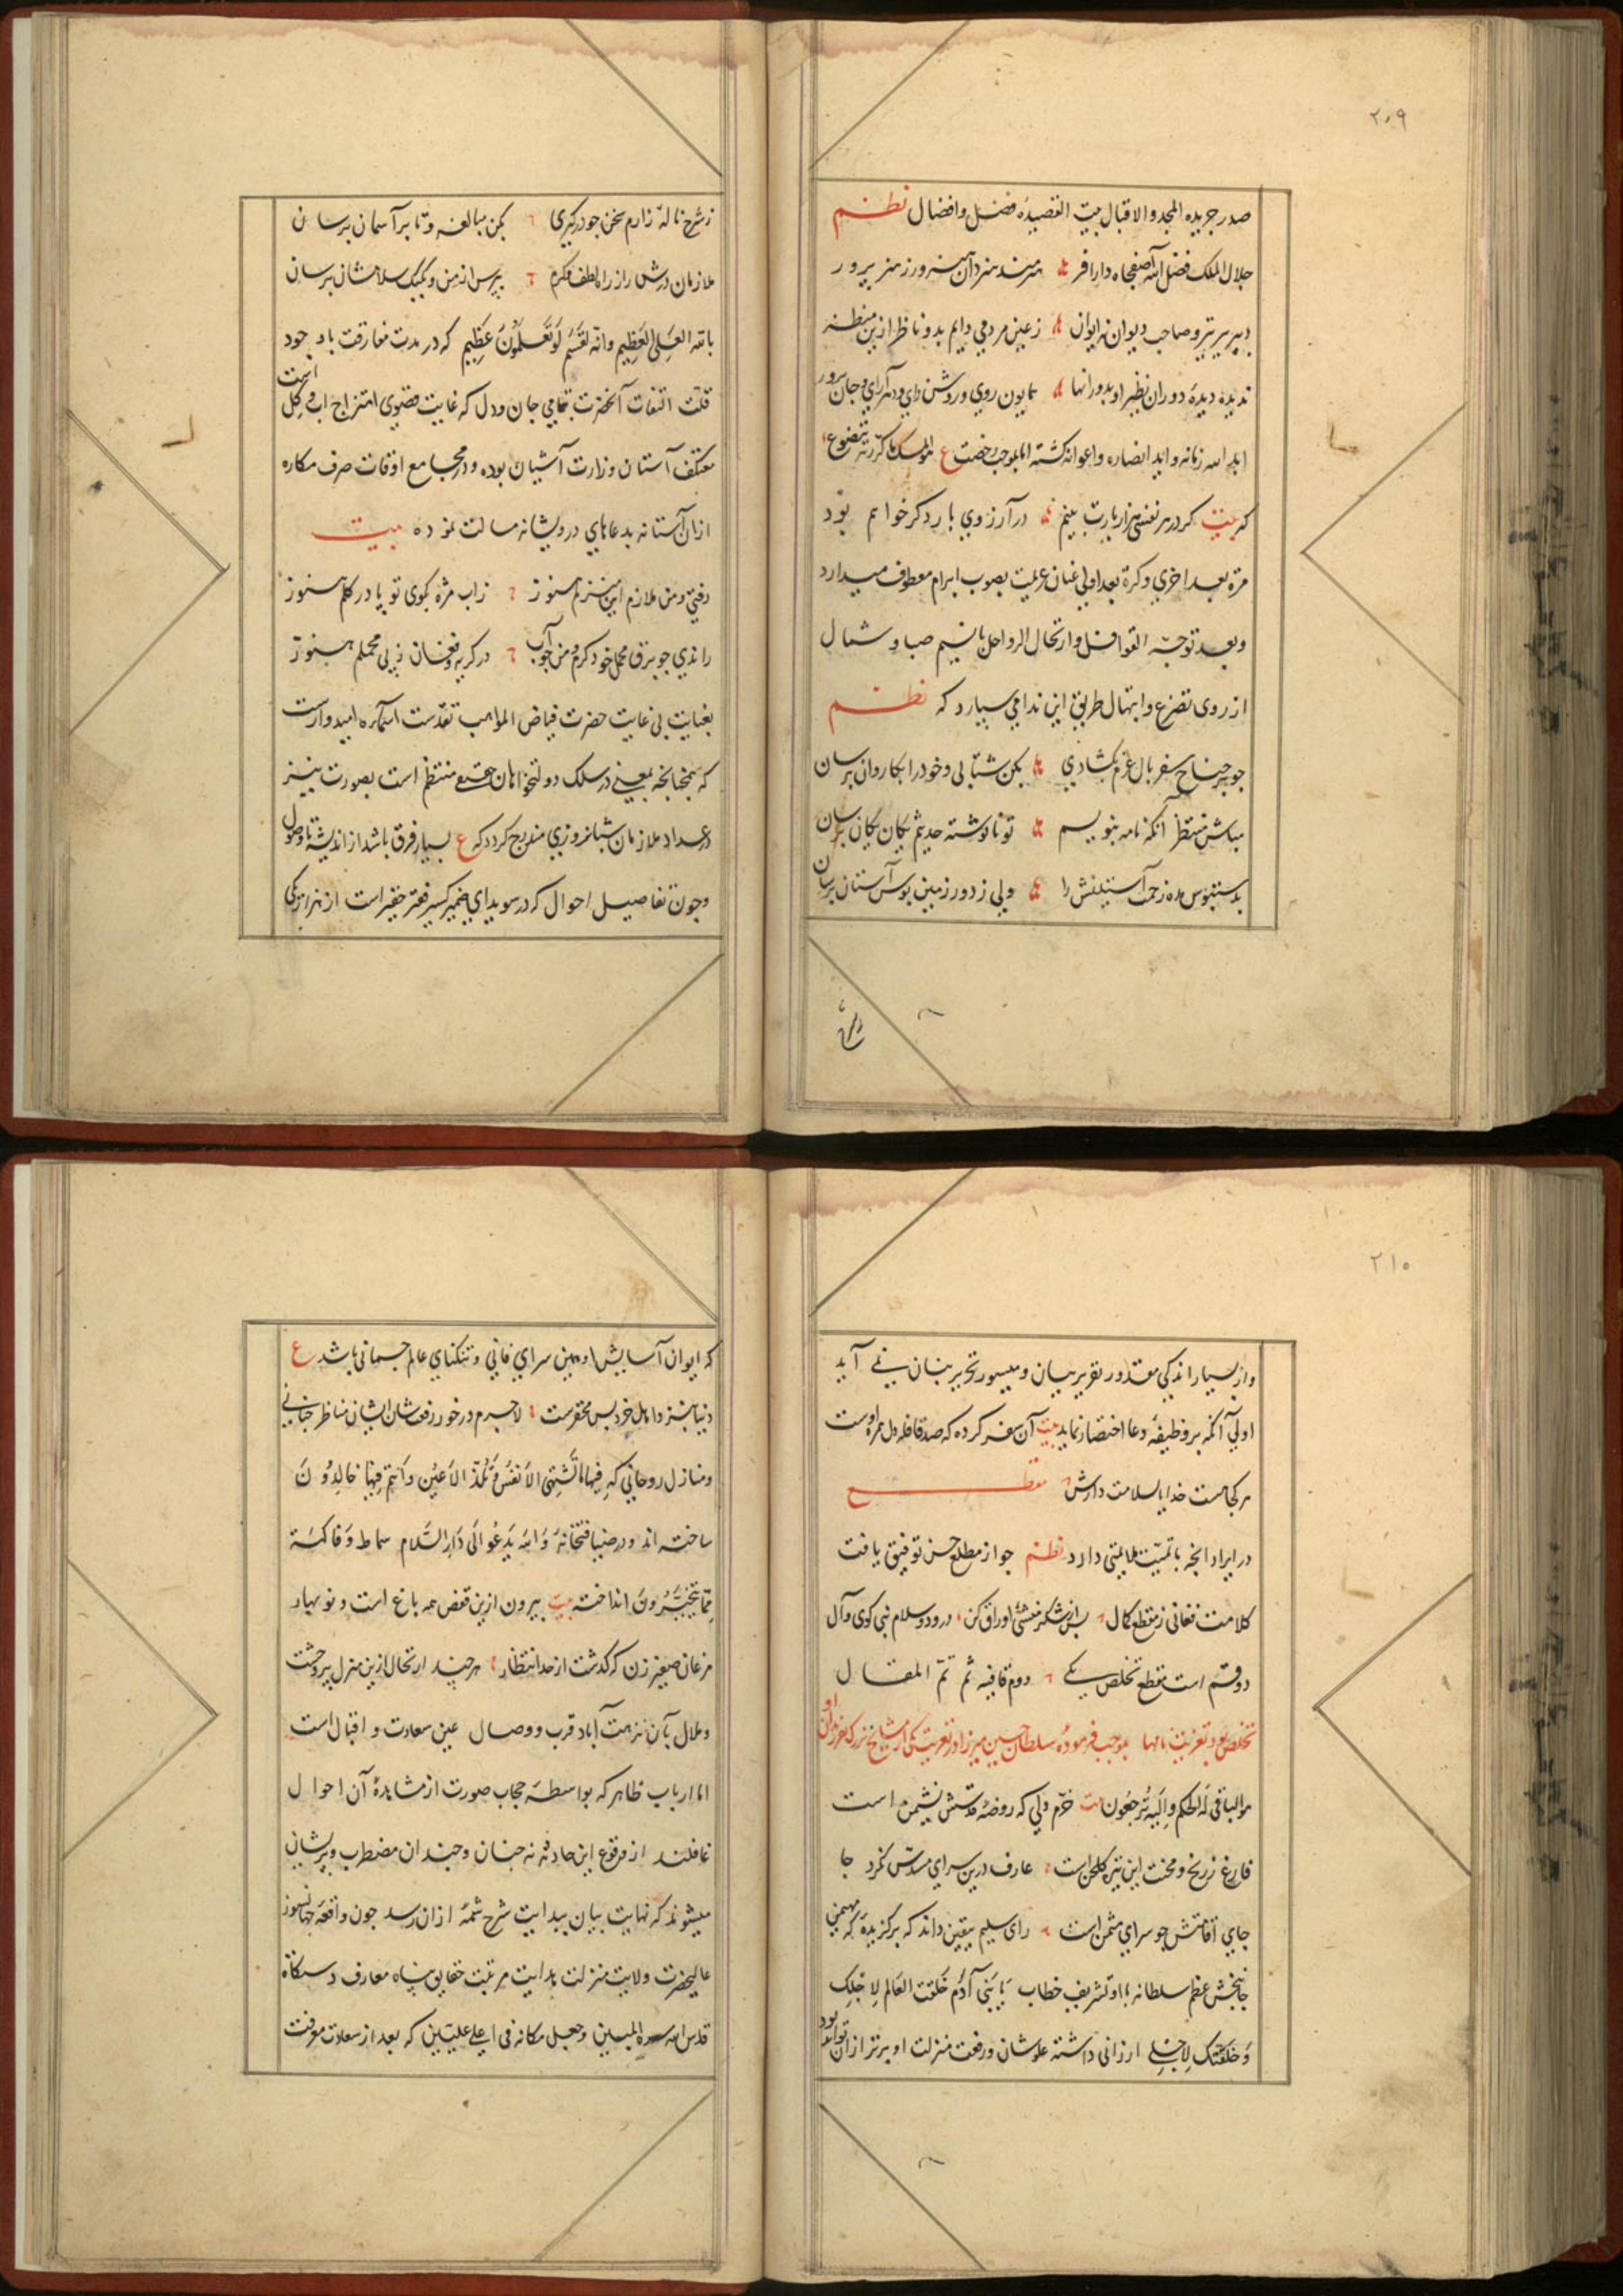 ۲۰۹
صدر جریده المجد والاقبال بیت القصیده فضل وافضال نظم
جلال الملک فضل الله آصفجاه دارا فر هنرمند هنردان هنرورز هنر پرور
دبیر بی نظیر و صاحب دیوان ایران زعین مردمی دایم بدو ناظر ازین منظر
ندیده دیدهٔ دوران نظیر او بدورانها همایون روی و روشن رای و دهرآرای و جان پرور
ابد الله زمانه واید انصاره واعوانه کشته ع هو المسک ما کررته یتضوع
که بیت کر در هر نفسی هزار بارت بینم در آرزوی بار دکر خواهم بود
مرة بعد اخری و کرة بعد اولی عنان عزیمت بصوب ابرام معطوف میدارد
وبعد توجه القوافل وارتحال الرواحل بانسیم صبا و شمال
از روی تضرع وابتهال طریق این ندا می سپارد که نظم
جو بر جناح سفر بال عزم بکشادی بکن شتابی و خود را بکاروان برسان
مباش منتظر آنکه نامه بنویسم تو نانوشته حدیثم یکان یکان برسان
بدستبوس مده زحمت آستینش را ولی ز دور زمین بوس آستان برسان
زشرح نالهٔ زارم سخن جو درکیری بکن مبالغه و تا بر آسمان برسان
ملازمان درش را ز راه لطف و کرم بپرس از من و یک یک سلامشان برسان
بالله العلی العظیم وانه لقسم لو تعلمون عظیم که در مدت مفارقت با وجود
قلت التفات آنحضرت بتمامی جان ودل که غایت قصوی امتزاج اب وکل است
معتکف آستان وزارت آشیان بوده و در مجامع اوقات صرف مکاره
ازان آستانه بدعاهای درویشانه مسالت نموده بیت
رفتی و من ملازم این منزلم هنوز زاب مژه بکوی تو پا در کلم هنوز
راندی جو برق محمل خود کرم و من جو آب در کریه و فغان ز پی محملم هنوز
بعنایت بی غایت حضرت فیاض المواهب تقدست اسماءه امیدوارست
که همجنانجه بمعنی در سلک دولتخواهان حقیقی منتظم است بصورت نیز
در عداد ملازمان شبانروزی مندرج کردد که ع بسیار فرق باشد از اندیشه تا وصول
وجون تفاصیل احوال که در سویدای ضمیر کسیر فقیر حقیر است از هزار یکی
۲۱۰
واز بسیار اندکی مقدور تقریر بیان و میسور تحریر بنان نمی آید
اولی آنکه بر وظیفهٔ دعا اختصار نماید بیت آن سفر کرده که صد قافله دل همره اوست
هر کجا هست خدایا بسلامت دارش مقطع
در ایراد انجه با تمیت ملایمتی دارد نظم جو از مطلع حسن توفیق یافت
کلامت فغانی ز مقطع کمال پس از شکر منشئ اوراق کن درود و سلام نبی کوی وآل
دو قسم است مقطع تخلص یکی دوم قافیه ثم تم المقال
هو الباقی له الحکم والیه ترجعون بیت خرم دلی که روضهٔ قدسش نشیمن است
فارغ ز رنج و محنت این تیره کلخن است عارف درین سرای مسدس نکرد جا
جای اقامتش جو سرای مثمن است رای سلیم بیقین داند که برکزیدهٔ که مهیمن
جانبخش عظم سلطانه با او تشریف خطاب یا بنی آدم خلقت العالم لاجلک
وخلقتک لاجلی ارزانی داشته علو شان و رفعت منزلت او برتر از ان تواند بود
که ایوان آسایش او همین سرای فانی و تنکنای عالم جسمانی باشد ع
دنیا بنزد اهل خرد بس محقرست لاجرم در خور رفعت شان ایشان مناظر جنانی
ومنازل روحانی که فیها ما تشتهی الانفس وتلذ الاعین وانتم فیها خالدون
ساخته اند و در ضیافتخانهٔ والله یدعو الی دار السلام سماط وفاکهة
مما یتخیرون انداخته بیت بیرون ازین قفص همه باغ است و نوبهار
مرغان صفیر زن که کذشت از حد انتظار هر جند ارتحال ازین منزل پر وحشت
وملال بآن نزهت آباد قرب و وصال عین سعادت و اقبال است
اما ارباب ظاهر که بواسطهٔ حجاب صورت از مشاهدهٔ آن احوال
غافلند از وقوع این حادثه نه جنان و جندان مضطرب و پریشان
میشوند که نهایت بیان ببدایت شرح شمهٔ ازان رسد جون واقعهٔ جهانسوز
عالیحضرت ولایت منزلت هدایت مرتبت حقایق پناه معارف دستکاه
قدس الله سره المبین وجعل مکانه فی اعلی علیین که بعد از سعادت معرفت